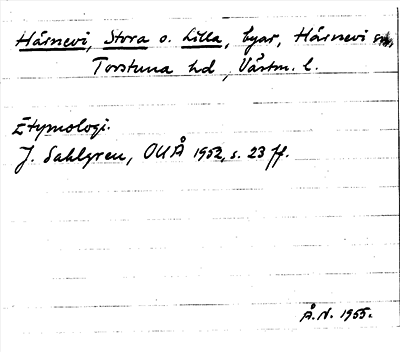 Härnevi, Stora o. Lilla, byar, Härnevi sn,
Torstuna hd, Västm. l.
Etymologi.
J. Sahlgren, OUÅ 1952, s. 23 ff.
Å.N. 1955.